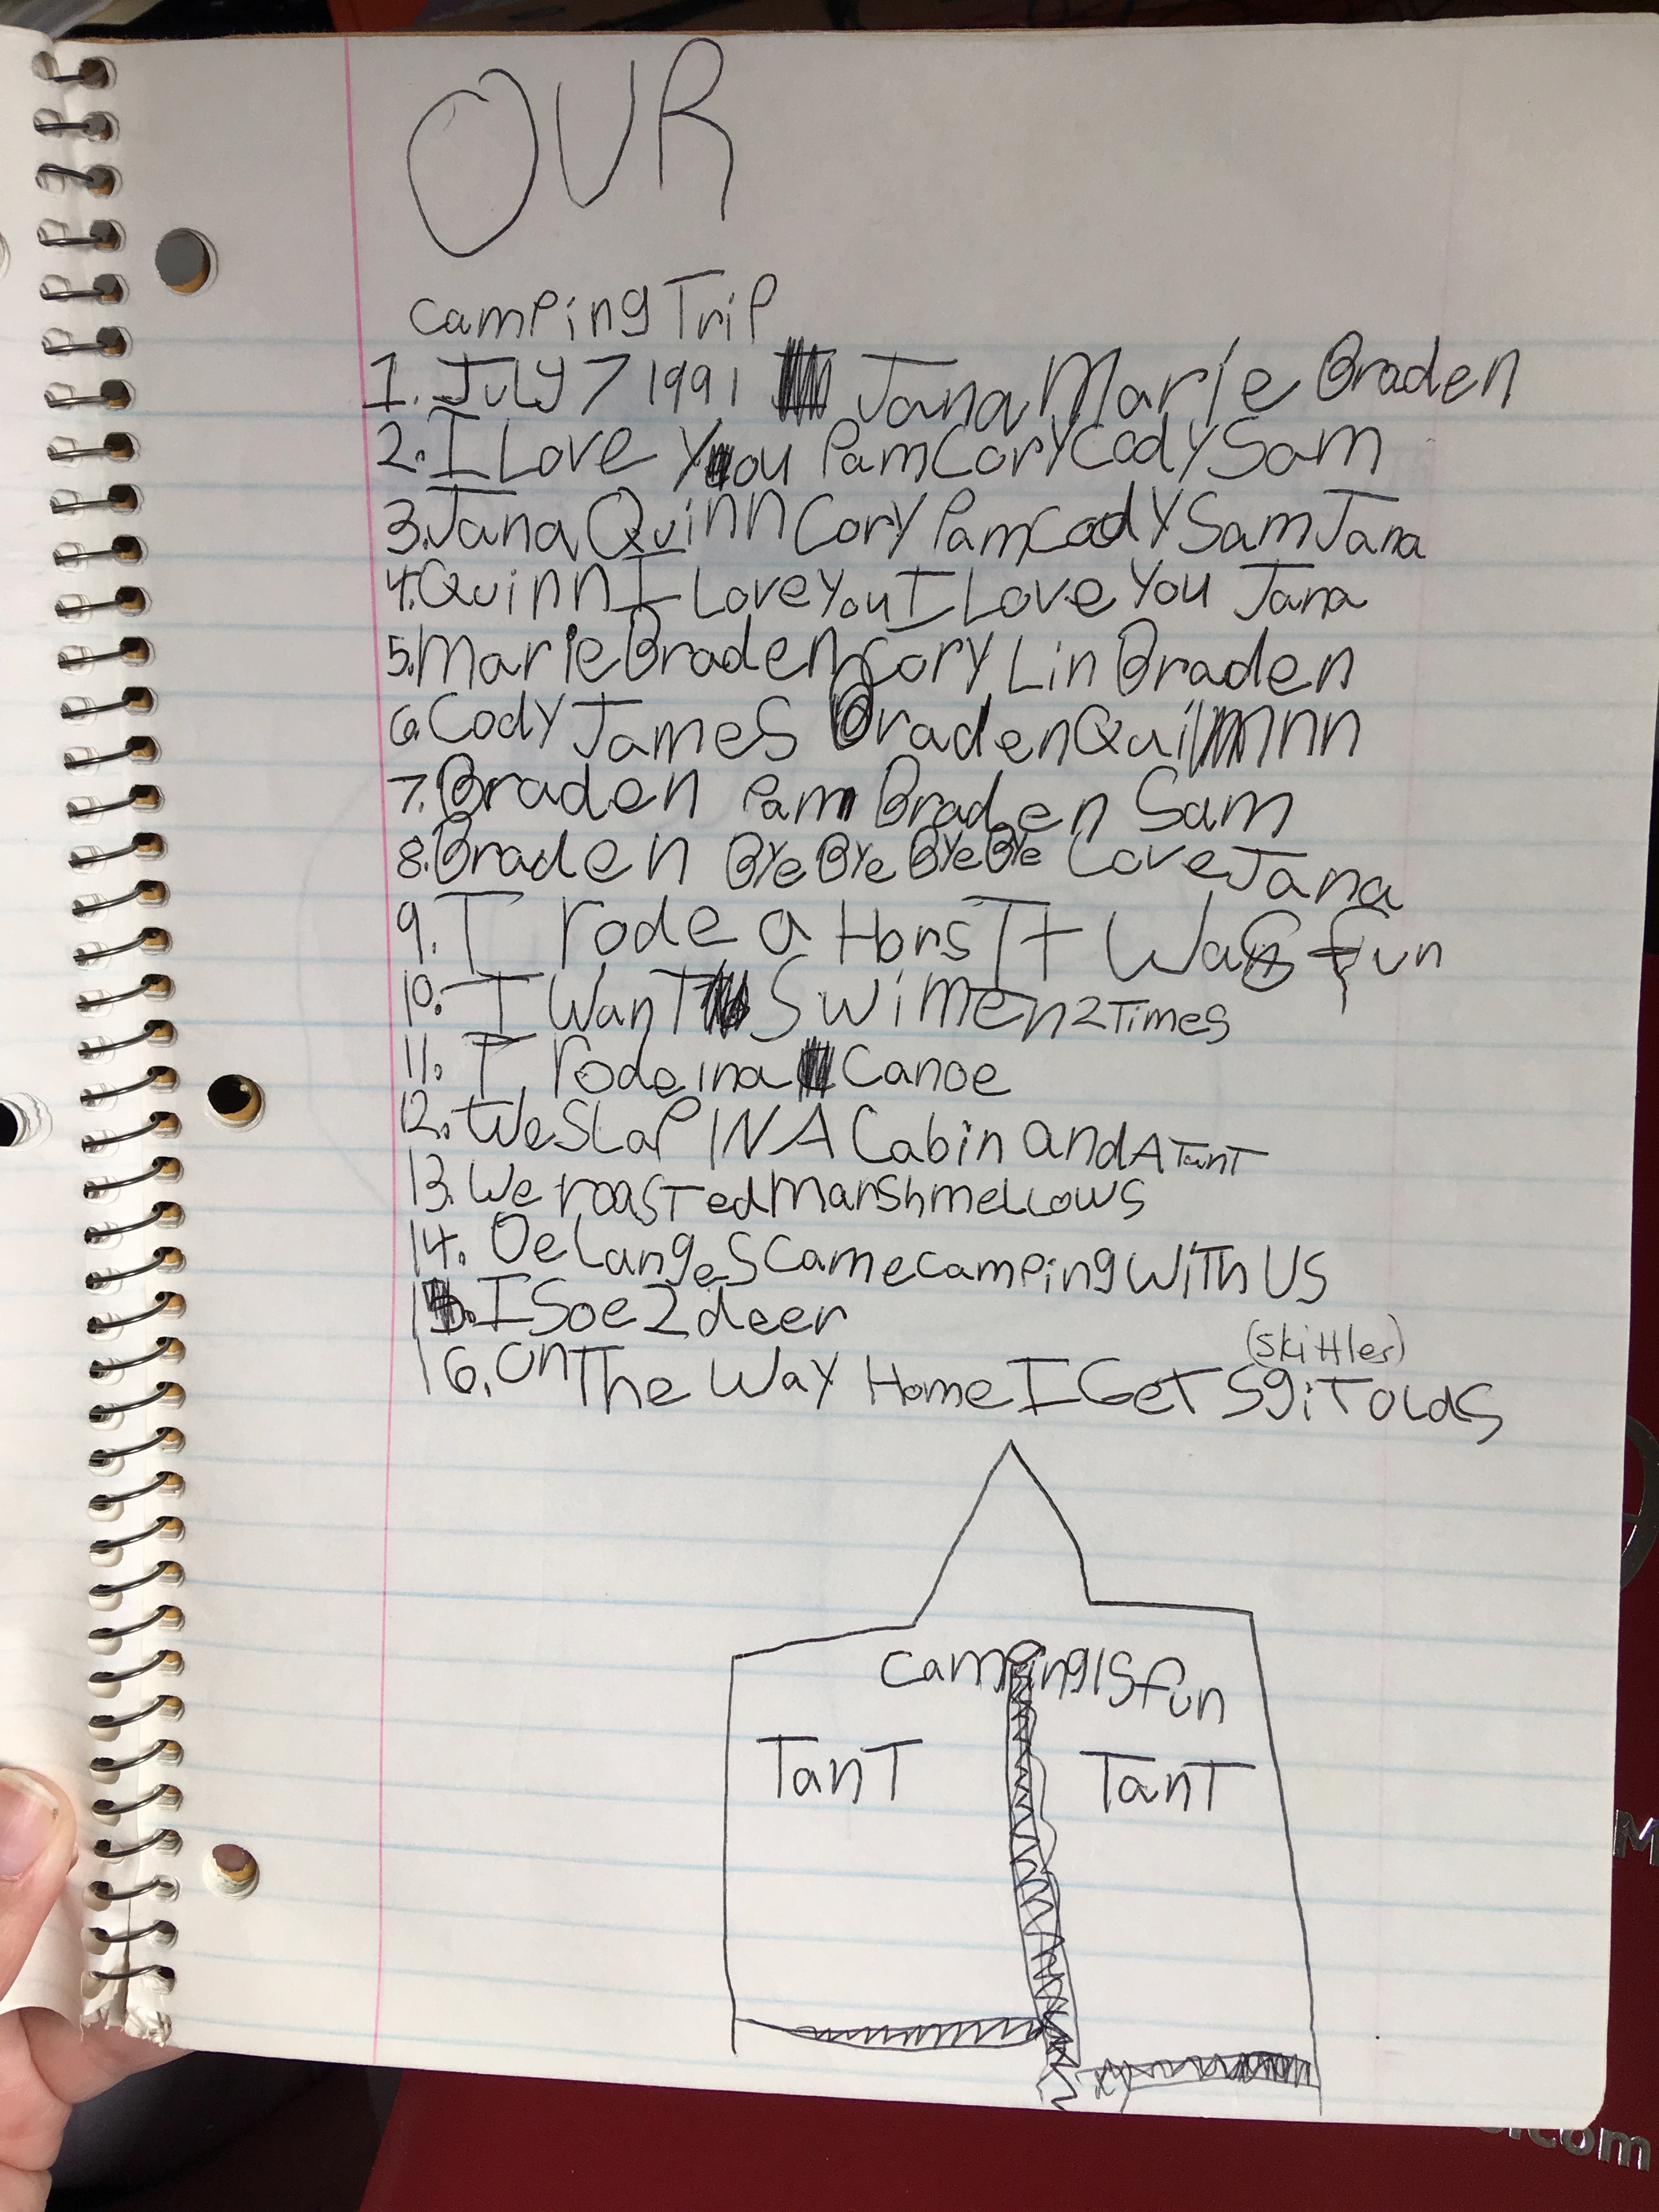 OUR
camping Trip
1. July 7 1991 Jana Marie Braden
2. I Love you Pam Cory Cody Sam
3. Jana Quinn Cory Pam Cody Sam Jana
4. Quinn I Love you I Love you Jana
5. Marie Braden Cory Lin Braden
6. Cody James Braden Quinn
7. Braden Pam Braden Sam
8. Braden Bye Bye Bye Bye Love Jana
9. I rode a Hors It Was fun
10. I Want Swimen 2 Times
11. I rode in a Canoe
12. We SLap IN A Cabin and A TanT
13. We roasTed marshmeLLows
14. DeLanges came camping WiTh US
15. I Soe 2 deer
(skittles)
16. on The Way Home I GeT SgiTolds
camping IS fun
TanT TanT
com